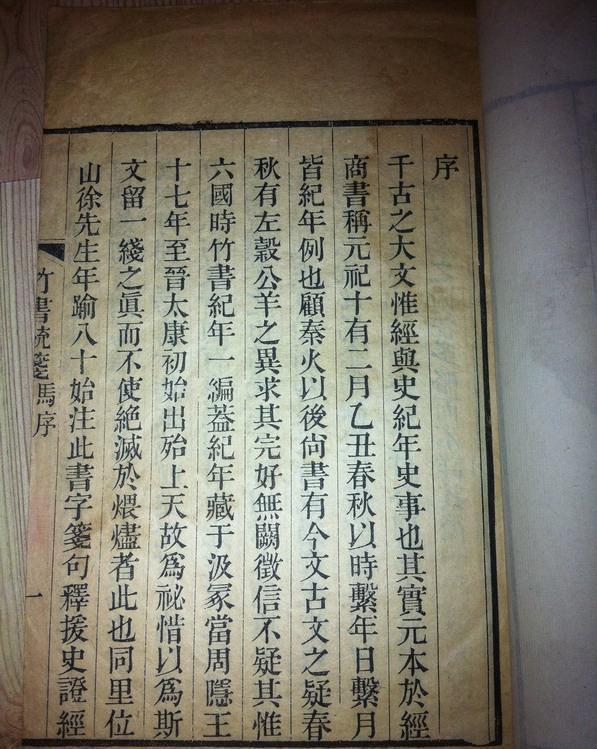 序
千古之大文惟經與史紀年史事也其實元本於經
商書稱元祀十有二月乙丑春秋以時繫年日繫月
皆紀年例也顧秦火以後尙書有今文古文之疑春
秋有左穀公羊之異求其完好無闕徵信不疑其惟
六國時竹書紀年一編葢紀年藏于汲冢當周隱王
十七年至晉太康初始出殆上天故爲祕惜以爲斯
文留一綫之眞而不使絶滅於煨燼者此也同里位
山徐先生年踰八十始注此書字箋句釋援史證經
竹書統箋馬序
一